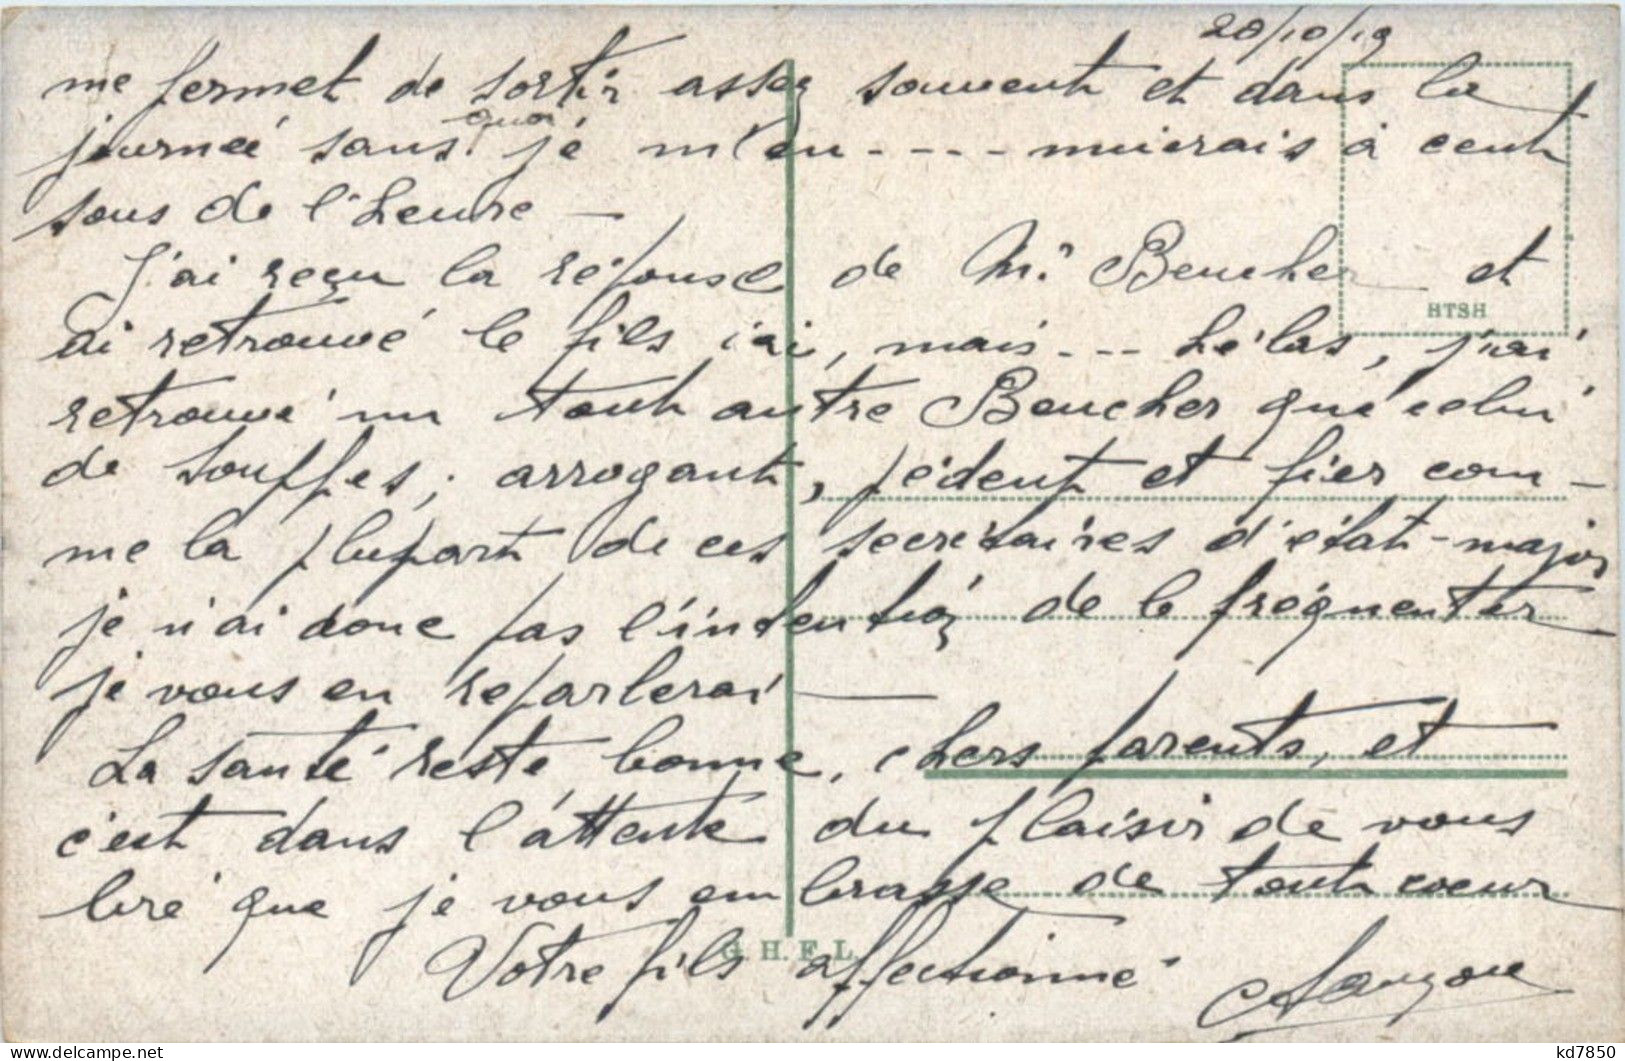 20/10/19
me permet de sortir assez souvent et dans la
journeé sans quoi je m'en---- nuierais à cent
sous de l'heure —
J'ai reçu la réponse de Mr Beucher et
ai retrouvé le fils ici, mais --- hélas, j'ai
retrouvé un tout autre Beucher que celui
de Souppes; arrogant, pédent et fier com-
me la plupart de ces secrétaires d'état-major
je n'ai donc pas l'intention de le fréquenter
je vous en reparlerai —
La santé reste bonne, chers parents, et
c'est dans l'attente du plaisir de vous
lire que je vous embrasse de tout coeur
Votre fils affectionné
HTSH
G. H. F. L.
kd7850